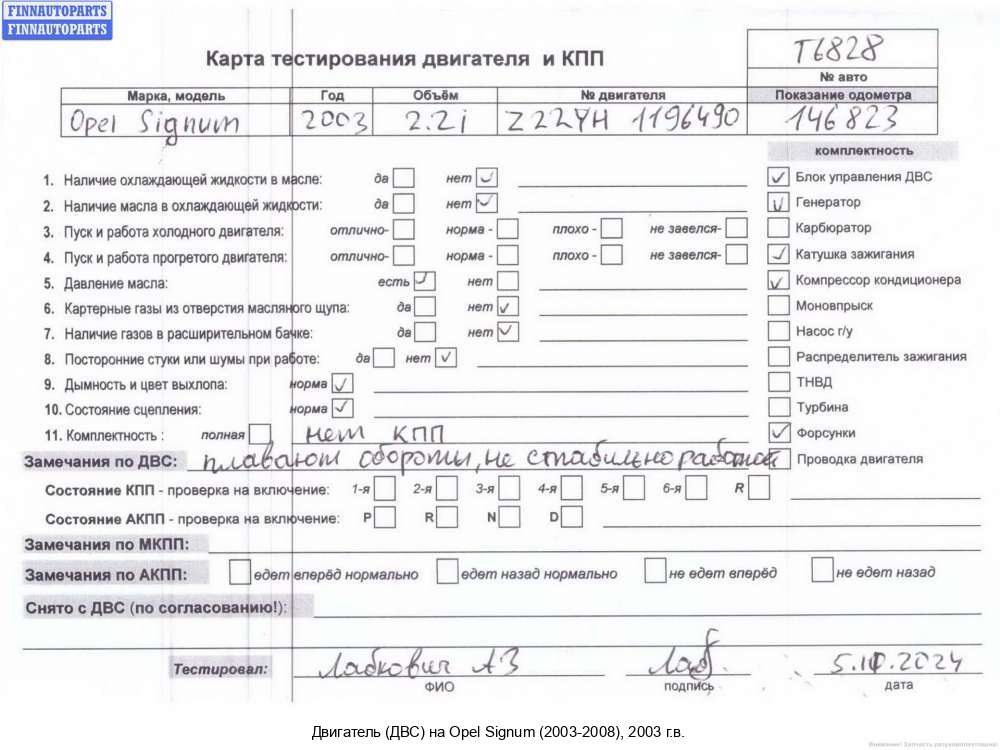 FINNAUTOPARTS
FINNAUTOPARTS
Карта тестирования двигателя и КПП
T6828
№ авто
Марка, модель Год Объём № двигателя Показание одометра
Opel Signum 2003 2.2i Z22YH 1196490 146823
комплектность
1. Наличие охлаждающей жидкости в масле: да нет
Блок управления ДВС
2. Наличие масла в охлаждающей жидкости: да нет
Генератор
3. Пуск и работа холодного двигателя: отлично- норма - плохо - не завелся-
Карбюратор
4. Пуск и работа прогретого двигателя: отлично- норма - плохо - не завелся-
Катушка зажигания
5. Давление масла: есть нет
Компрессор кондиционера
6. Картерные газы из отверстия масляного щупа: да нет
Моновпрыск
7. Наличие газов в расширительном бачке: да нет
Насос г/у
8. Посторонние стуки или шумы при работе: да нет
Распределитель зажигания
9. Дымность и цвет выхлопа: норма
ТНВД
10. Состояние сцепления: норма
Турбина
11. Комплектность : полная нет КПП
Форсунки
Замечания по ДВС: плавают обороты, не стабильно работает
Проводка двигателя
Состояние КПП - проверка на включение: 1-я 2-я 3-я 4-я 5-я 6-я R
Состояние АКПП - проверка на включение: P R N D
Замечания по МКПП:
Замечания по АКПП: едет вперёд нормально едет назад нормально не едет вперёд не едет назад
Снято с ДВС (по согласованию!):
Тестировал: Лабкович АЗ Лаб. 5.10.2024
ФИО подпись дата
Двигатель (ДВС) на Opel Signum (2003-2008), 2003 г.в.